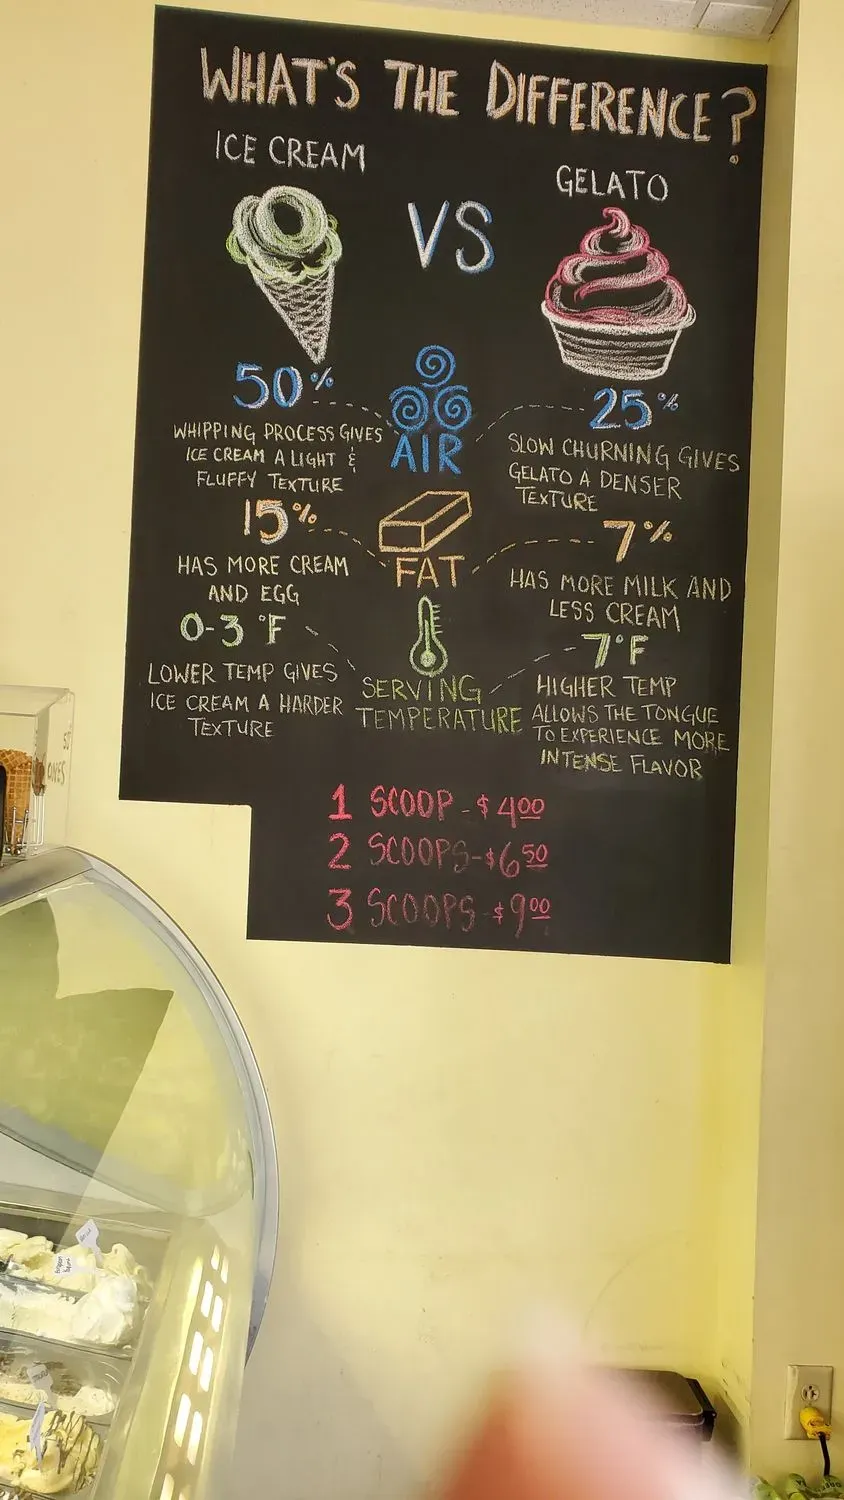 WHAT'S THE DIFFERENCE?
ICE CREAM
VS
GELATO
50%
WHIPPING PROCESS GIVES
ICE CREAM A LIGHT &
FLUFFY TEXTURE
AIR
25%
SLOW CHURNING GIVES
GELATO A DENSER
TEXTURE
15%
HAS MORE CREAM
AND EGG
FAT
7%
HAS MORE MILK AND
LESS CREAM
0-3°F
LOWER TEMP GIVES
ICE CREAM A HARDER
TEXTURE
SERVING
TEMPERATURE
7°F
HIGHER TEMP
ALLOWS THE TONGUE
TO EXPERIENCE MORE
INTENSE FLAVOR
1 SCOOP - $4.00
2 SCOOPS - $6.50
3 SCOOPS - $9.00